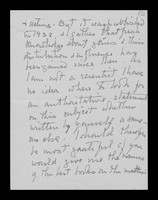 nature. But it was published
in 1922 & I gather that fresh
knowledge about genes & their
distribution in foreign
been gained since then. As
I am not a scientist I have
no idea where to look for
an authoritative statement
on this subject whether
written by yourself or some-
one else. I should therefore
be most grateful if you
would give me the names
of the best books on the matter